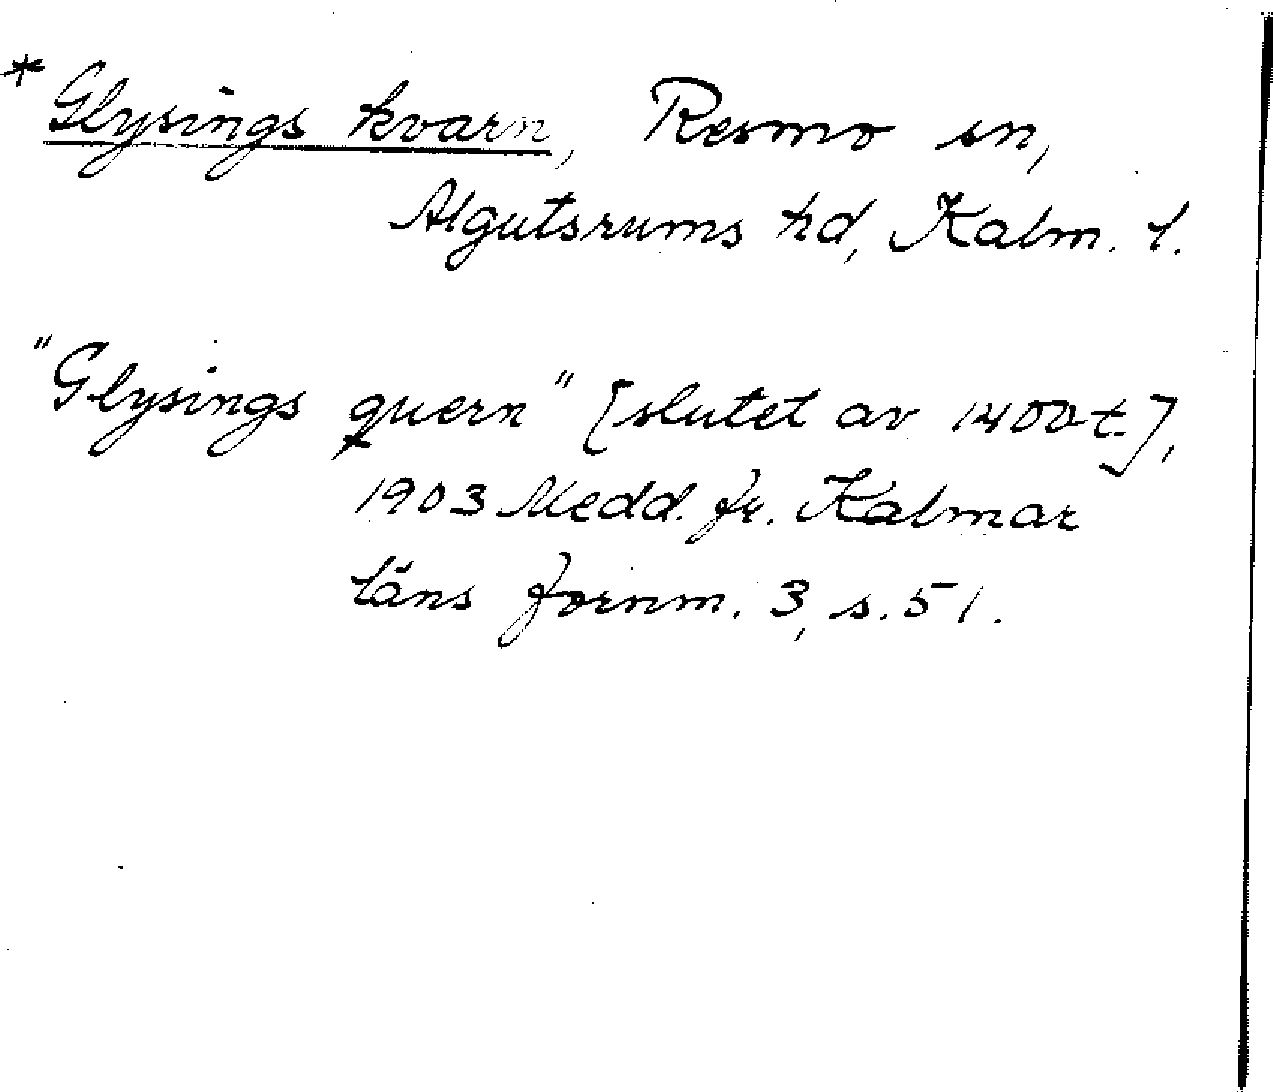 * Glysings kvarn, Resmo sn,
Algutsrums hd, Kalm. l.
"Glysings quern" [slutet av 1400-t.],
1903 Medd. fr. Kalmar
läns fornm. 3, s. 51.